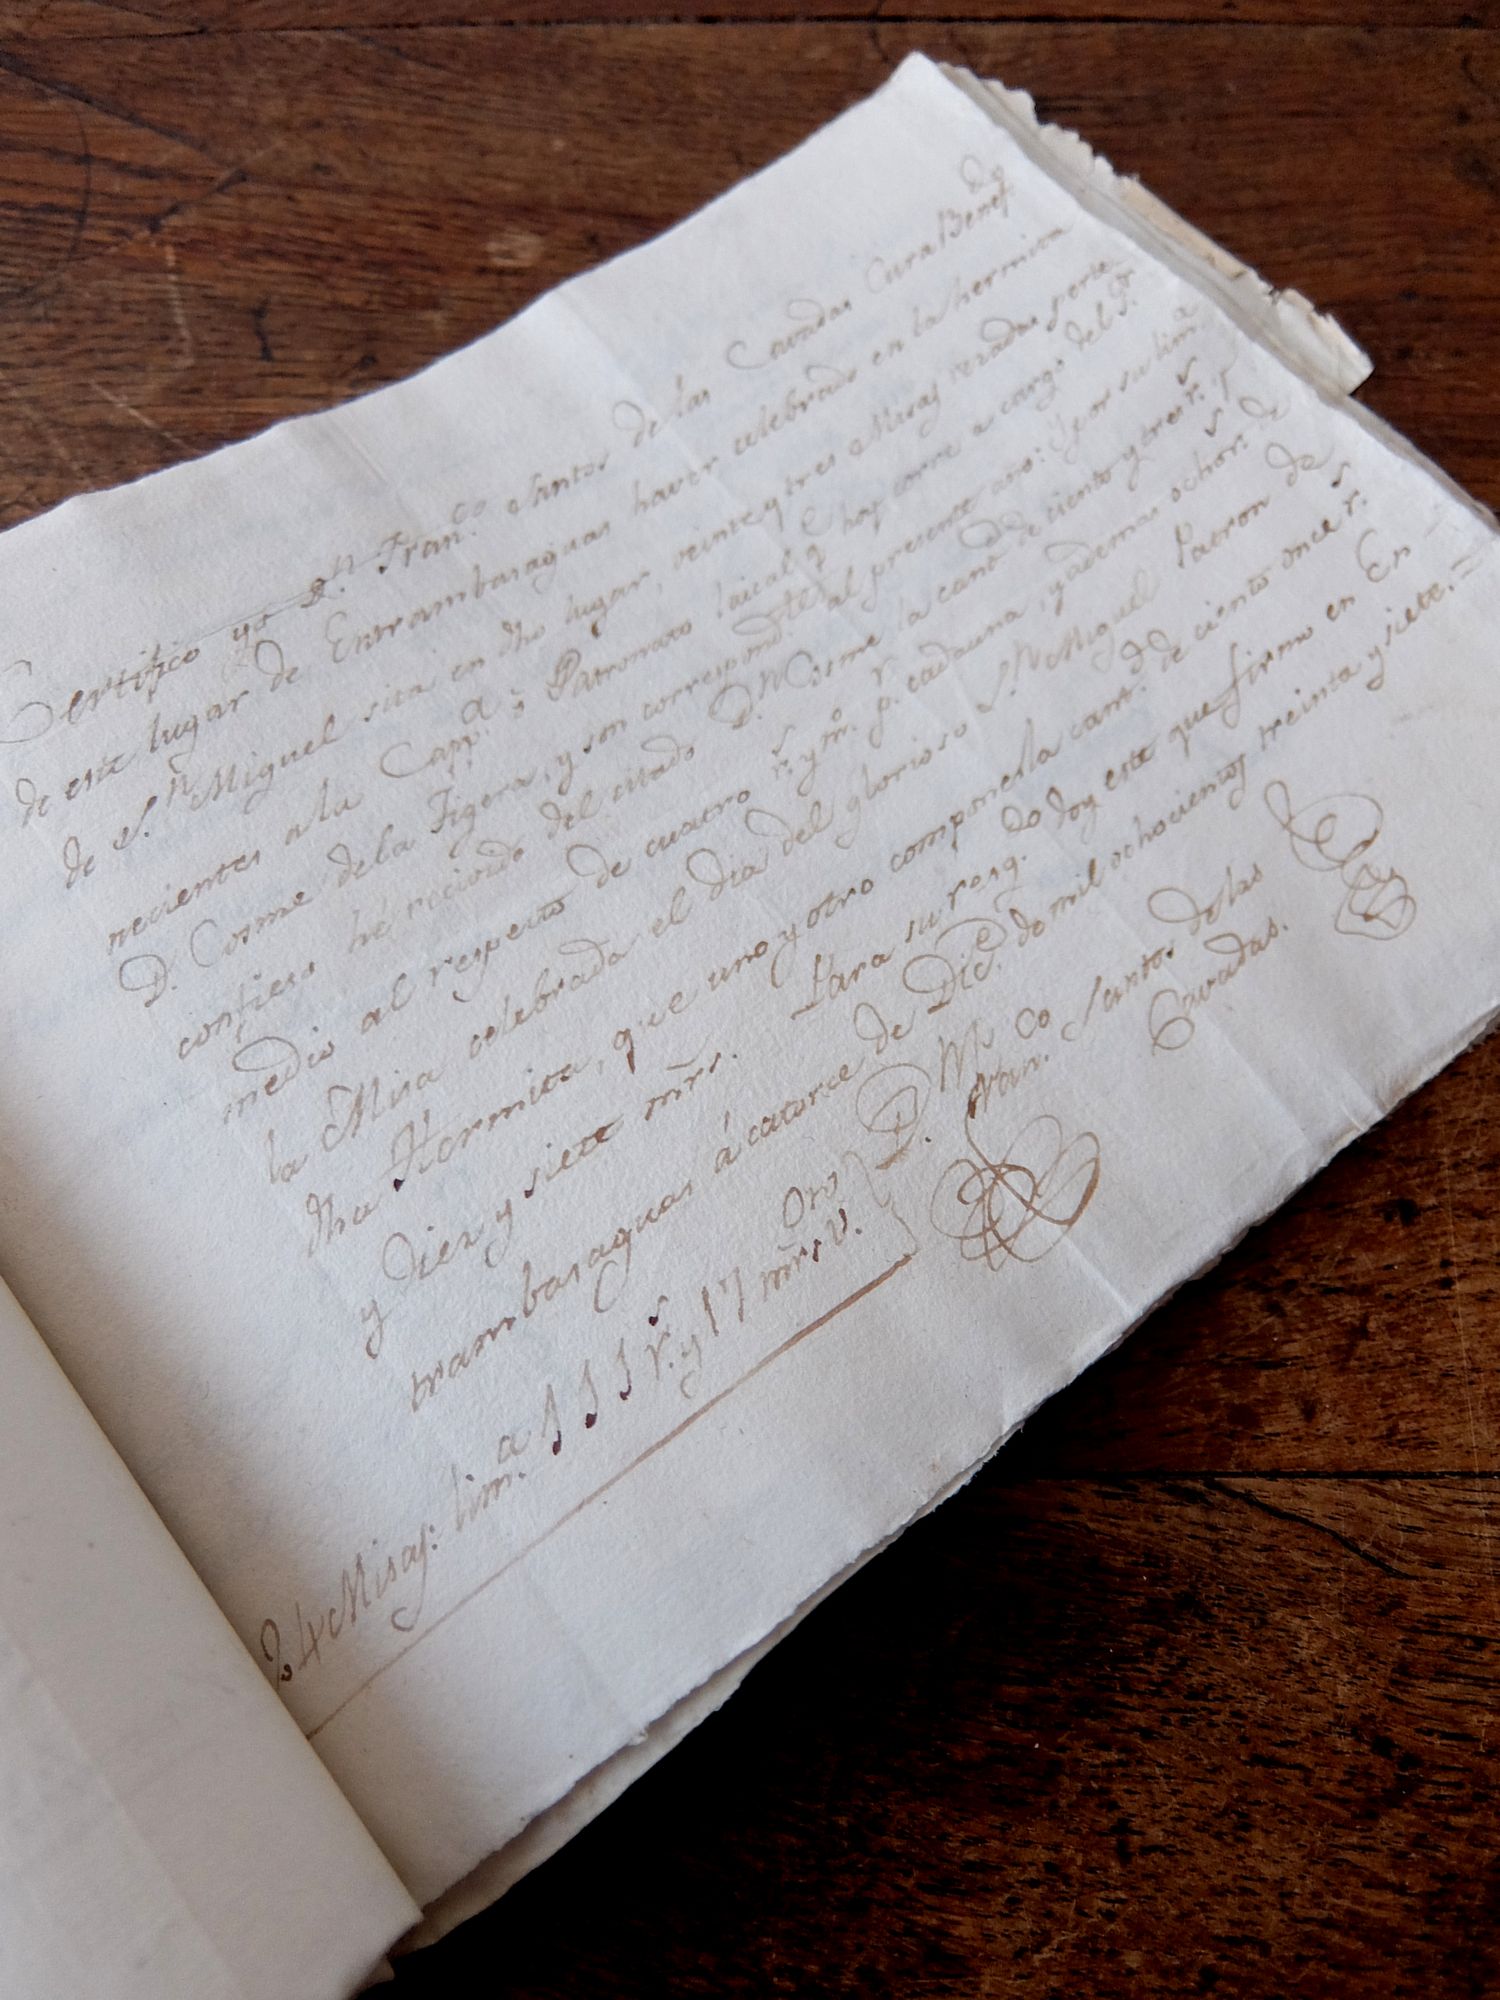 Certifico yo D.n Fran.co Santos de las Cavadas Cura Benef.do
de este lugar de Entrambasaguas haver celebrado en la hermita
de S.n Miguel sita en dho lugar, veinte y tres Misas rezadas perte-
necientes a la Capp.a ó Patronato laical q.e hoy corre a cargo del S.or
D. Cosme de la Figera, y son correspond.tes al presente año: Y por su lim.a
confieso hé recivido del citado D.n Cosme la cant.d de ciento y tres r.s y
medio al respecto de cuatro r.s y m.o p.r cada una, y ademas ocho r.s de
la Misa celebrada el dia del glorioso S.n Miguel Patron de
dha Hermita, que uno y otro componen la cant.d de ciento once r.s
y diez y siete mrs. Para su resg.do doy este que firmo en En-
trambasaguas á catorce de Dic.e de mil ochocientos treinta y siete.=
D.n Fran.co Santos de las
Cavadas.
24 Misas: lim.a 111 r.s y 17 mrs v.